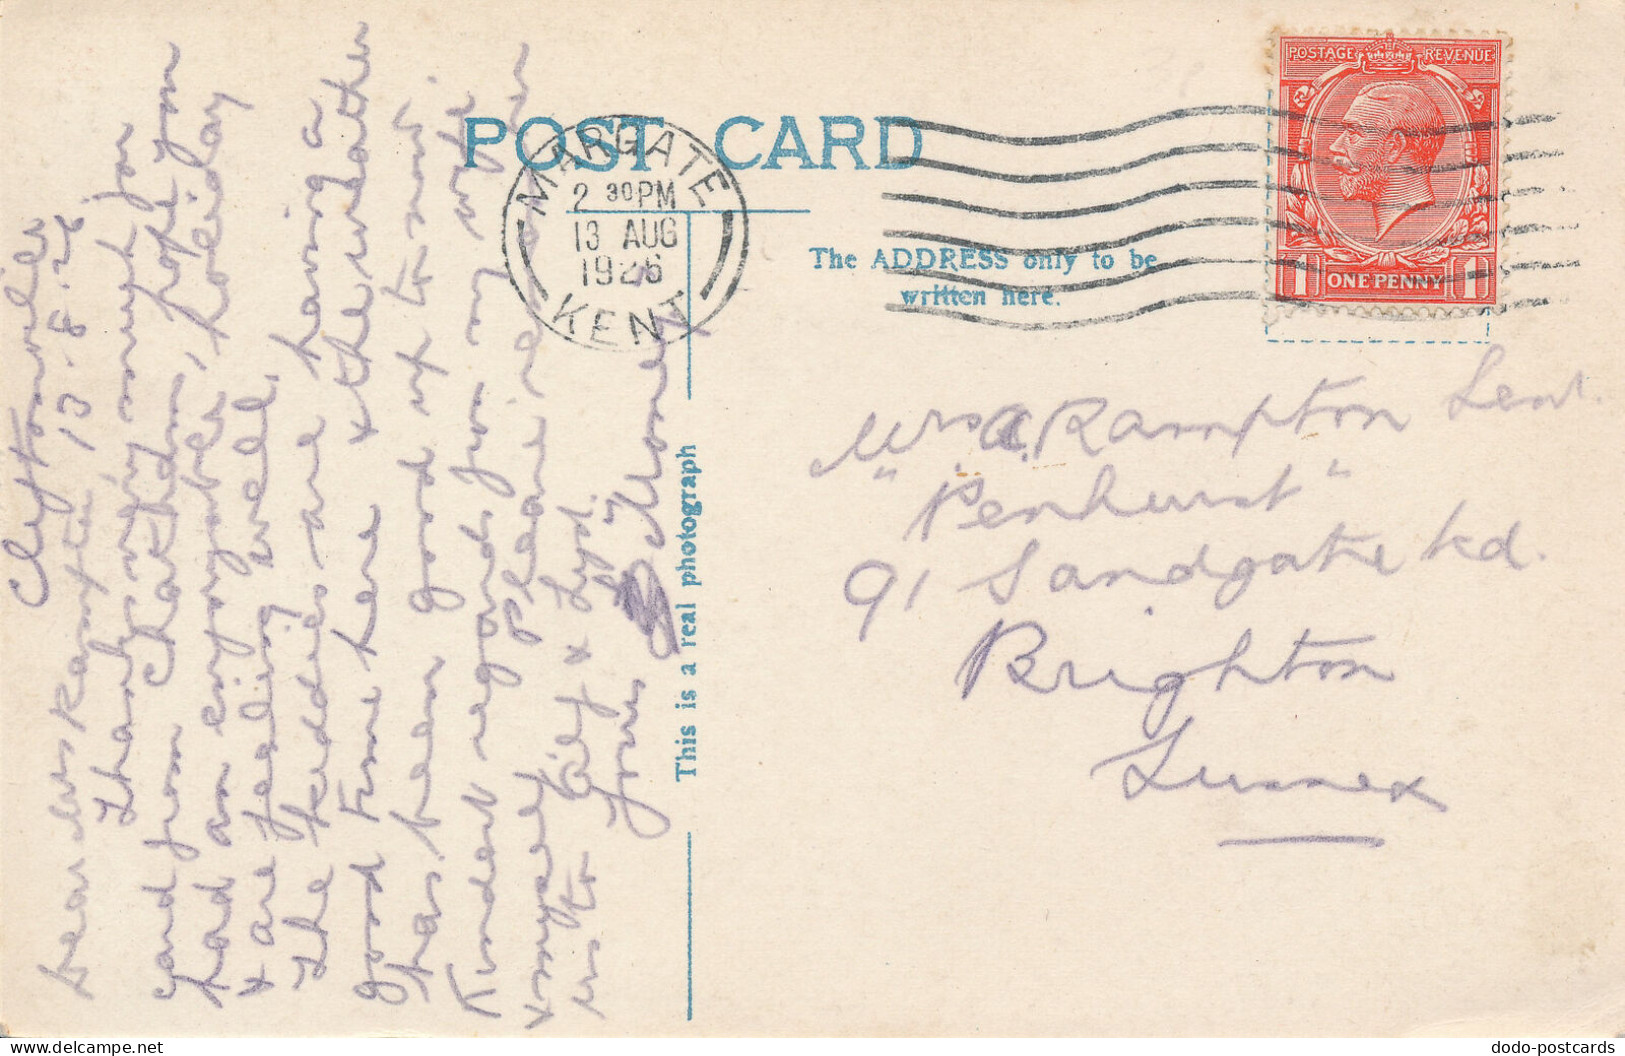 POST CARD
MARGATE
2 30 PM
13 AUG
1926
KENT
POSTAGE REVENUE
1 ONE PENNY 1
The ADDRESS only to be
written here.
This is a real photograph
Cliftonville
13.8.26
Dear Mrs Rampton
Thanks very much for
card from hope you
had an enjoyable holiday
& are feeling well,
The kiddies are having a
good time here & the weather
has been good up to now.
Kindest regards from my wife
& myself Please remember
us to Elsy & Syd.
Yours
Mrs A Rampton Senr.
"Penhurst"
91 Sandgate Rd.
Brighton
Sussex
dodo-postcards